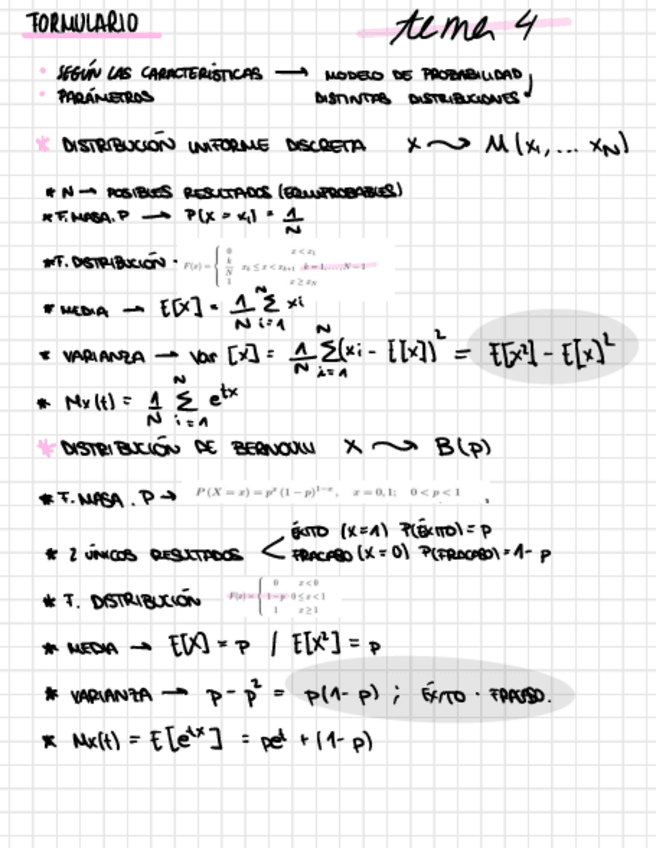 FORMULARIO tema 4
• SEGÚN LAS CARACTERÍSTICAS → MODELO DE PROBABILIDAD
• PARÁMETROS DISTINTAS DISTRIBUCIONES
* DISTRIBUCIÓN UNIFORME DISCRETA X ~> M(x₁, ... x_N)
* N → POSIBLES RESULTADOS (EQUIPROBABLES)
* F. MASA. P → P(X = xᵢ) = 1/N
* F. DISTRIBUCIÓN · F(x) = { 0 x < x₁
k/N x_k ≤ x < x_{k+1} k = 1, ..., N − 1
1 x ≥ x_N
* MEDIA → E[X] = 1/N Σ_{i=1}^{N} xi
* VARIANZA → Var [x] = 1/N Σ_{i=1}^{N} (xi - E[x])² = E[x²] - E[x]²
* Mx(t) = 1/N Σ_{i=1}^{N} e^{tx}
* DISTRIBUCIÓN DE BERNOULLI X ~> B(p)
* F. MASA. P → P(X = x) = pˣ(1 − p)^{1−x}, x = 0, 1; 0 < p < 1
ÉXITO (X=1) P(ÉXITO) = p
* 2 ÚNICOS RESULTADOS < FRACASO (X=0) P(FRACASO) = 1- p
* F. DISTRIBUCIÓN F(x) = { 0 x < 0
1 − p 0 ≤ x < 1
1 x ≥ 1
* MEDIA → E[X] = p / E[X²] = p
* VARIANZA → p - p² = p(1- p) ; ÉXITO · FRACASO.
* Mx(t) = E[e^{tx}] = pe^t + (1- p)